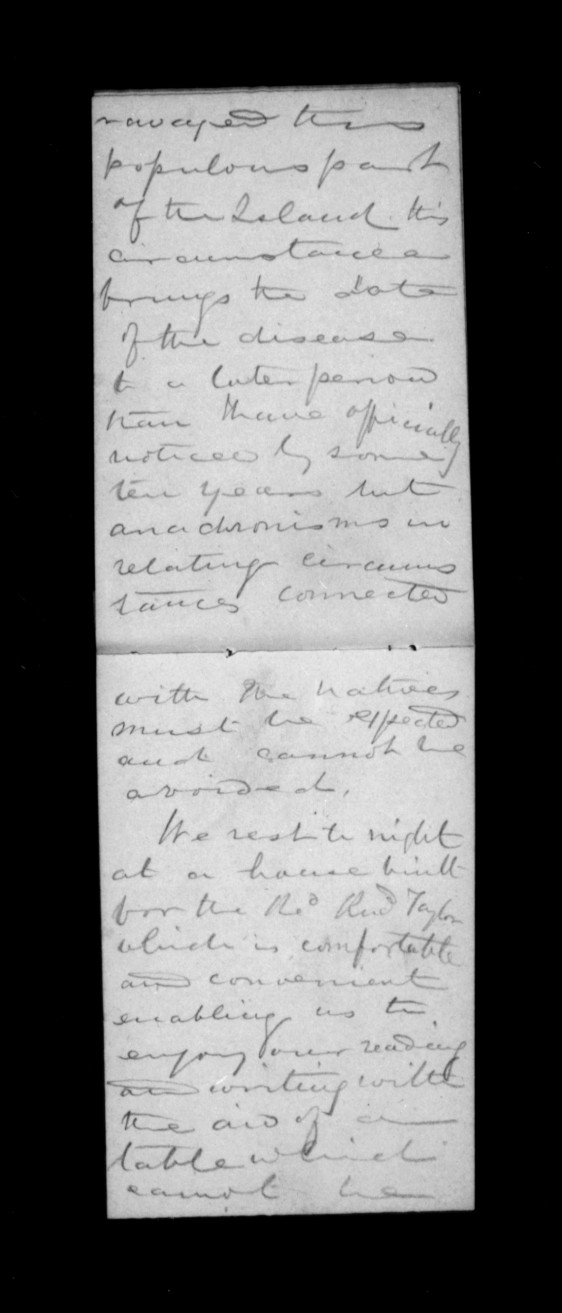 ravaged this
populous part
of the Island. this
circumstance
brings the date
of the disease
to a later period
than I have officially
noticed by some
ten years but
anachronisms in
relating circums
tances connected
with the natives
must be expected
and cannot be
avoided.
We rest to night
at a house built
for the Revd Richd Taylor
which is comfortable
and convenient
enabling us to
enjoy our reading
and writing with
the aid of a
table which
cannot be